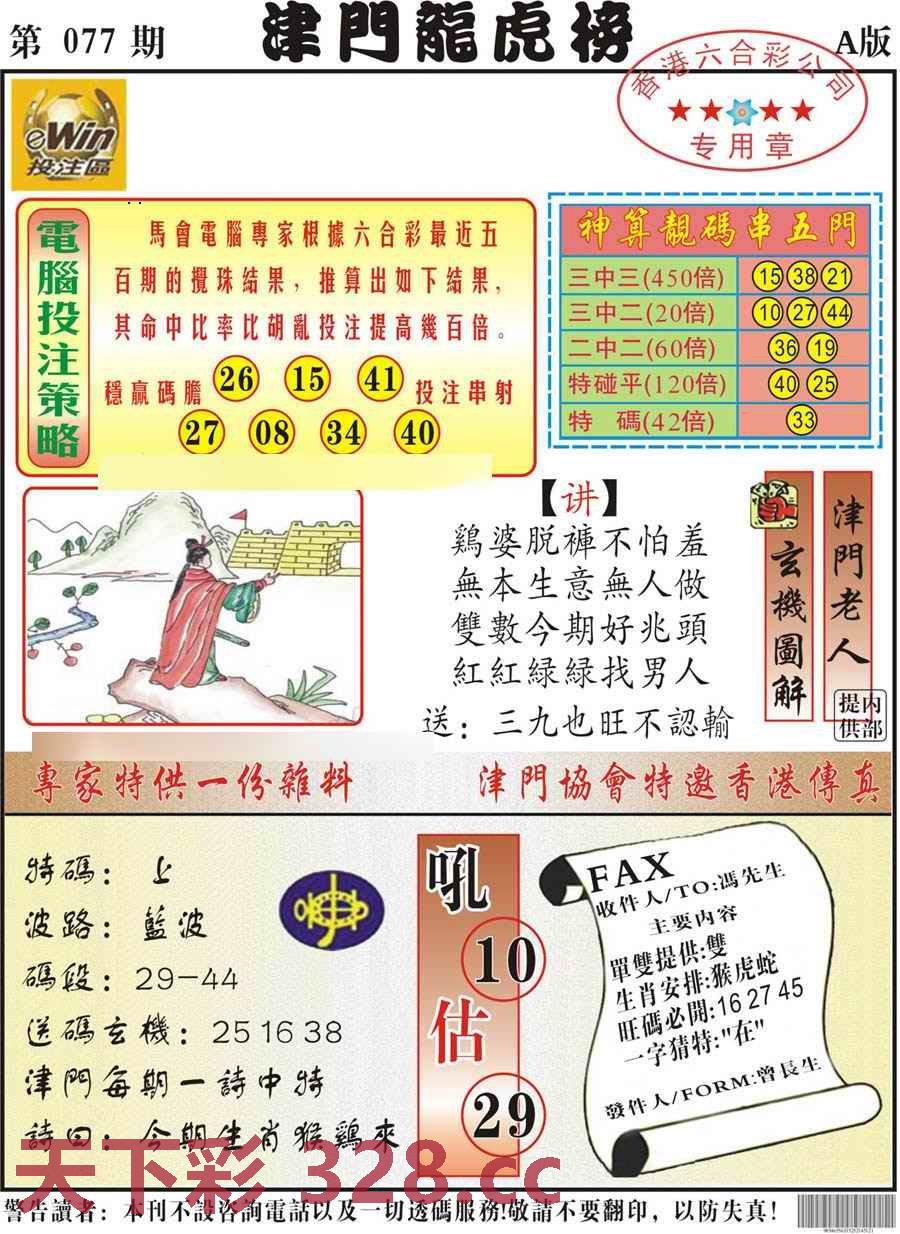 第 077 期
津門龍虎榜
A版
香港六合彩公司
专用章
eWin
投注區
電腦投注策略
馬會電腦專家根據六合彩最近五
百期的攪珠結果，推算出如下結果，
其命中比率比胡亂投注提高幾百倍。
穩贏碼膽 26 15 41 投注串射
27 08 34 40
神算靚碼串五門
三中三(450倍) 15 38 21
三中二(20倍) 10 27 44
二中二(60倍) 36 19
特碰平(120倍) 40 25
特 碼(42倍) 33
【讲】
鷄婆脱褲不怕羞
無本生意無人做
雙數今期好兆頭
紅紅緑緑找男人
送：三九也旺不認輸
玄機圖解
津門老人
内部提供
專家特供一份雜料
津門協會特邀香港傳真
特碼：上
波路：藍波
碼段：29-44
送碼玄機：25 16 38
津門每期一詩中特
詩曰：今期生肖猴鷄來
吼
10
估
29
FAX
收件人/TO:馮先生
主要内容
單雙提供:雙
生肖安排:猴虎蛇
旺碼必開:16 27 45
一字猜特:"在"
發件人/FORM:曾長生
天下彩 328.cc
警告讀者：本刊不設咨詢電話以及一切透碼服務!敬請不要翻印，以防失真！